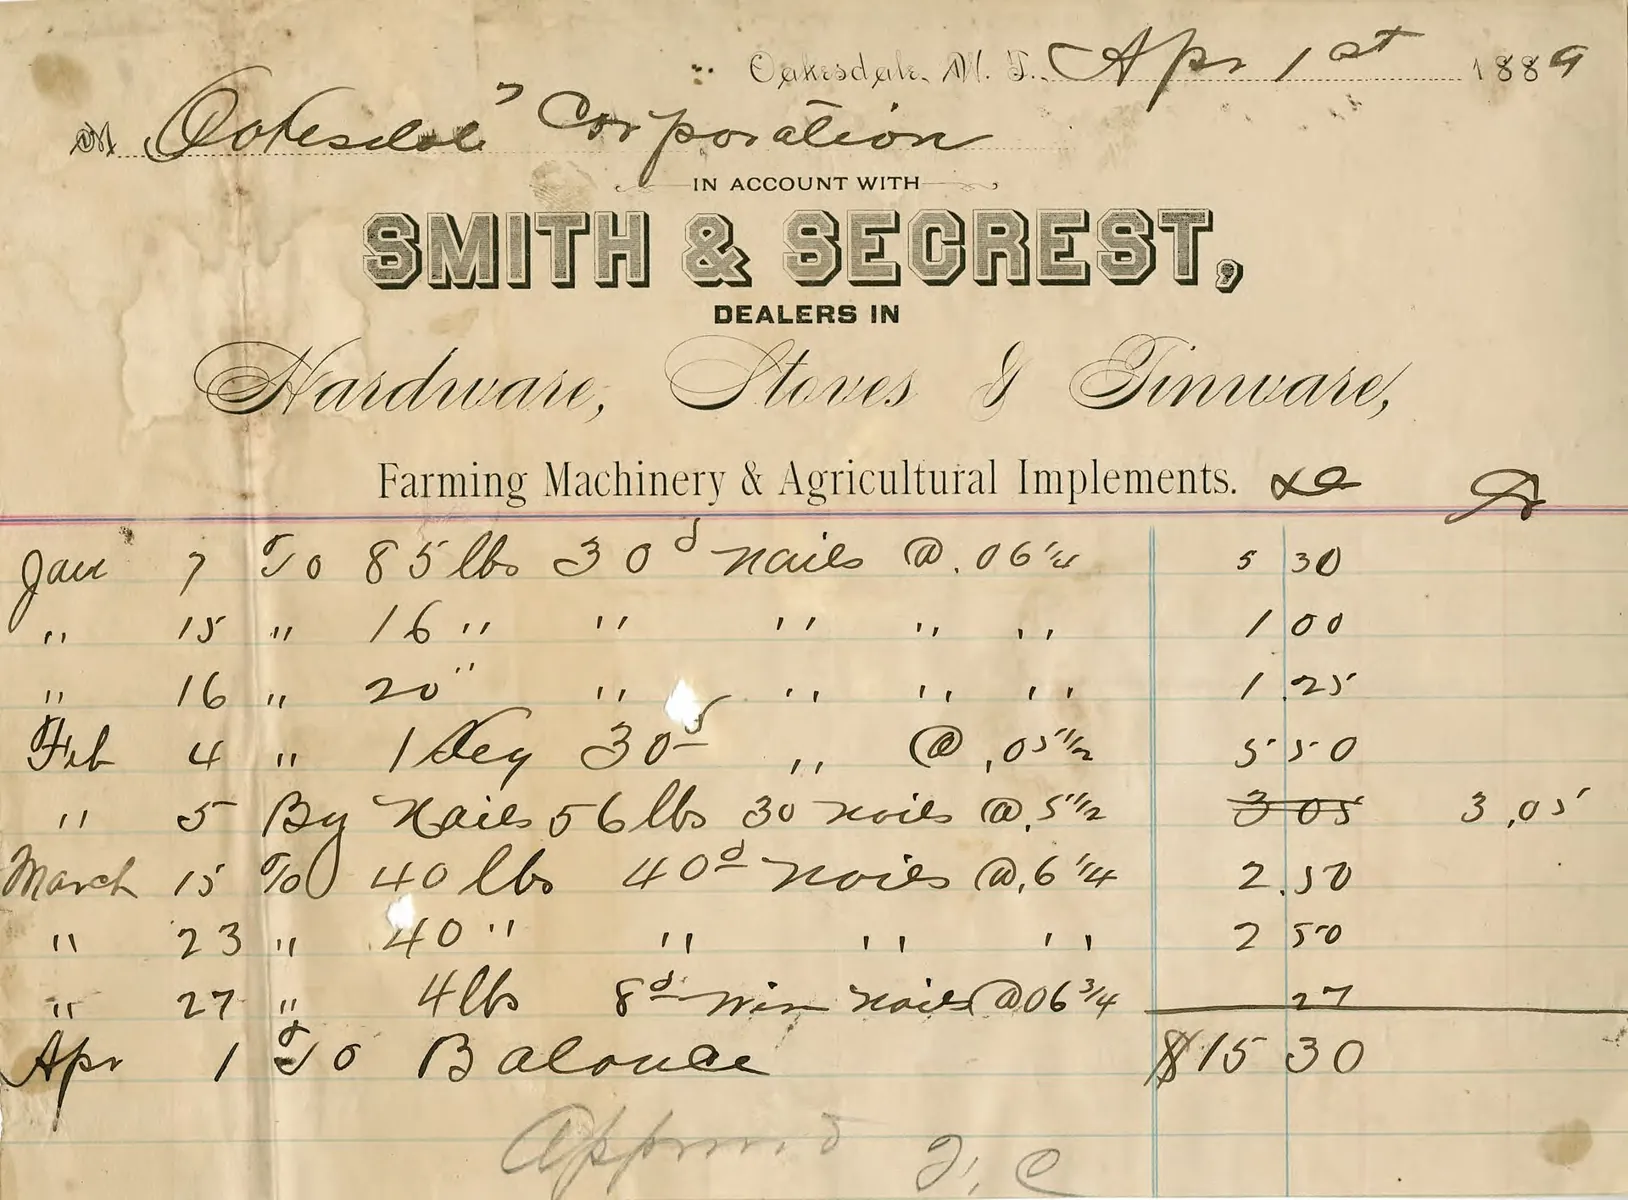 Oakesdale, W. T., Apr 1st 1889
M Oakesdale Corporation
IN ACCOUNT WITH
SMITH & SECREST,
DEALERS IN
Hardware, Stoves & Tinware,
Farming Machinery & Agricultural Implements. Cr
Jan 7 To 85 lbs 30d nails @ .06 1/4 5 30
" 15 " 16 " " " " " 1 00
" 16 " 20 " " " " " 1.25
Feb 4 " 1 Keg 30d " @ .05 1/2 5 50
" 5 By Nails 56 lbs 30 nails @ .5 1/2 3 05 3.05
March 15 To 40 lbs 40d nails @ .6 1/4 2.50
" 23 " 40 " " " " 2 50
" 27 " 4 lbs 8d nails @ 06 3/4 27
Apr 1 To Balance $15 30
Approved